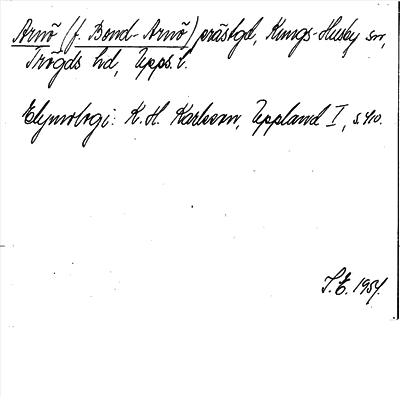 Arnö (f. Bond-Arnö) prästgd, Kungs-Husby sn,
Trögds hd, Upps. l.
Etymologi: K. H. Karlsson, Uppland I, s. 410.
S.E. 1957.